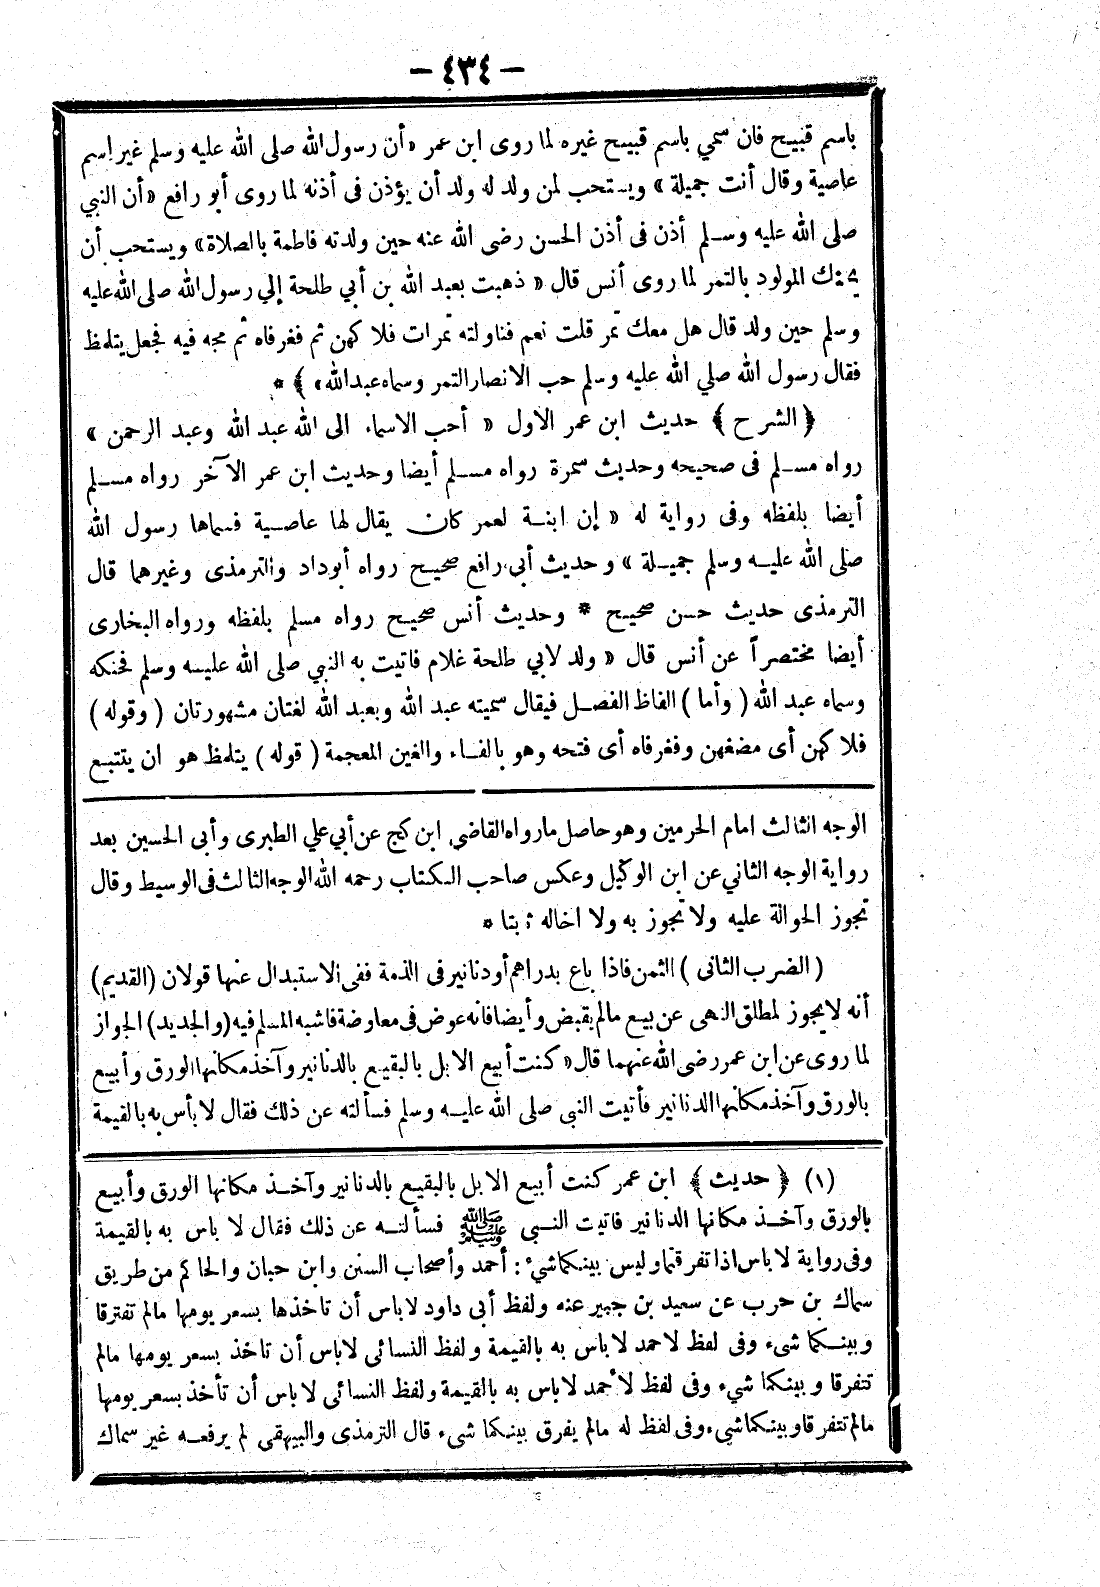 — ٤٣٤ —
باسم قبيح فان سمي باسم قبيح غيره لما روى ابن عمر «أن رسول الله صلى الله عليه وسلم غير اسم
عاصية وقال أنت جميلة» ويستحب لمن ولد له ولد أن يؤذن في أذنه لما روى أبو رافع «أن النبي
صلى الله عليه وسلم أذن في أذن الحسن رضى الله عنه حين ولدته فاطمة بالصلاة» ويستحب أن
يحنك المولود بالتمر لما روى أنس قال « ذهبت بعبد الله بن أبي طلحة إلي رسول الله صلى الله عليه
وسلم حين ولد قال هل معك تمر قلت نعم فناولته تمرات فلا كهن ثم فغرفاه ثم مجه فيه فجعل يتلمظ
فقال رسول الله صلي الله عليه وسلم حب الانصار التمر وسماه عبد الله» ﴾ *
﴿ الشرح ﴾ حديث ابن عمر الاول « أحب الاسماء الى الله عبد الله وعبد الرحمن »
رواه مسلم فى صحيحه وحديث سمرة رواه مسلم أيضا وحديث ابن عمر الآخر رواه مسلم
أيضا بلفظه وفى رواية له « إن ابنة لعمر كان يقال لها عاصية فسماها رسول الله
صلى الله عليه وسلم جميلة » وحديث أبى رافع صحيح رواه أبوداد والترمذى وغيرهما قال
الترمذى حديث حسن صحيح * وحديث أنس صحيح رواه مسلم بلفظه ورواه البخارى
أيضا مختصراً عن أنس قال « ولد لابي طلحة غلام فاتيت به النبي صلى الله عليه وسلم فحنكه
وسماه عبد الله ( وأما ) الفاظ الفصل فيقال سميته عبد الله وبعبد الله لغتان مشهورتان ( وقوله )
فلا كهن أى مضغهن وفغرفاه أى فتحه وهو بالفاء والغين المعجمة ( قوله ) يتلمظ هو ان يتتبع
الوجه الثالث امام الحرمين وهو حاصل مارواه القاضي ابن كج عن أبي علي الطبرى وأبى الحسين بعد
رواية الوجه الثاني عن ابن الوكيل وعكس صاحب الكتاب رحمه الله الوجه الثالث فى الوسيط وقال
تجوز الحوالة عليه ولا تجوز به ولا اخاله ثابتا *
( الضرب الثانى ) الثمن فاذا باع بدراهم أودنانير فى الذمة ففى الاستبدال عنها قولان (القديم)
أنه لا يجوز لمطلق النهى عن بيع مالم يقبض وأيضا فانه عوض فى معاوضة فاشبه المسلم فيه (والجديد) الجواز
لما روى عن ابن عمر رضى الله عنهما قال « كنت أبيع الابل بالبقيع بالدنانير وآخذ مكانها الورق وأبيع
بالورق وآخذ مكانها الدنانير فأتيت النبى صلى الله عليه وسلم فسألته عن ذلك فقال لا بأس به بالقيمة
(١) ﴿ حديث ﴾ ابن عمر كنت أبيع الابل بالبقيع بالدنانير وآخذ مكانها الورق وأبيع
بالورق وآخذ مكانها الدنانير فاتيت النبى ﷺ فسألته عن ذلك فقال لا باس به بالقيمة
وفى رواية لا باس اذا تفرقتما وليس بينكما شيء : أحمد وأصحاب السنن وابن حبان والحاكم من طريق
سماك بن حرب عن سعيد بن جبير عنه ولفظ أبى داود لا باس أن تاخذها بسعر يومها مالم تفترقا
وبينكما شىء وفى لفظ لاحمد لا باس به بالقيمة ولفظ النسائى لاباس أن تاخذ بسعر يومها مالم
تتفرقا وبينكما شيء وفى لفظ لأحمد لاباس به بالقيمة ولفظ النسائى لا باس أن تأخذ بسعر يومها
مالم تتفرقا وبينكما شيء وفى لفظ له مالم يفرق بينكما شىء قال الترمذى والبيهقى لم يرفعه غير سماك